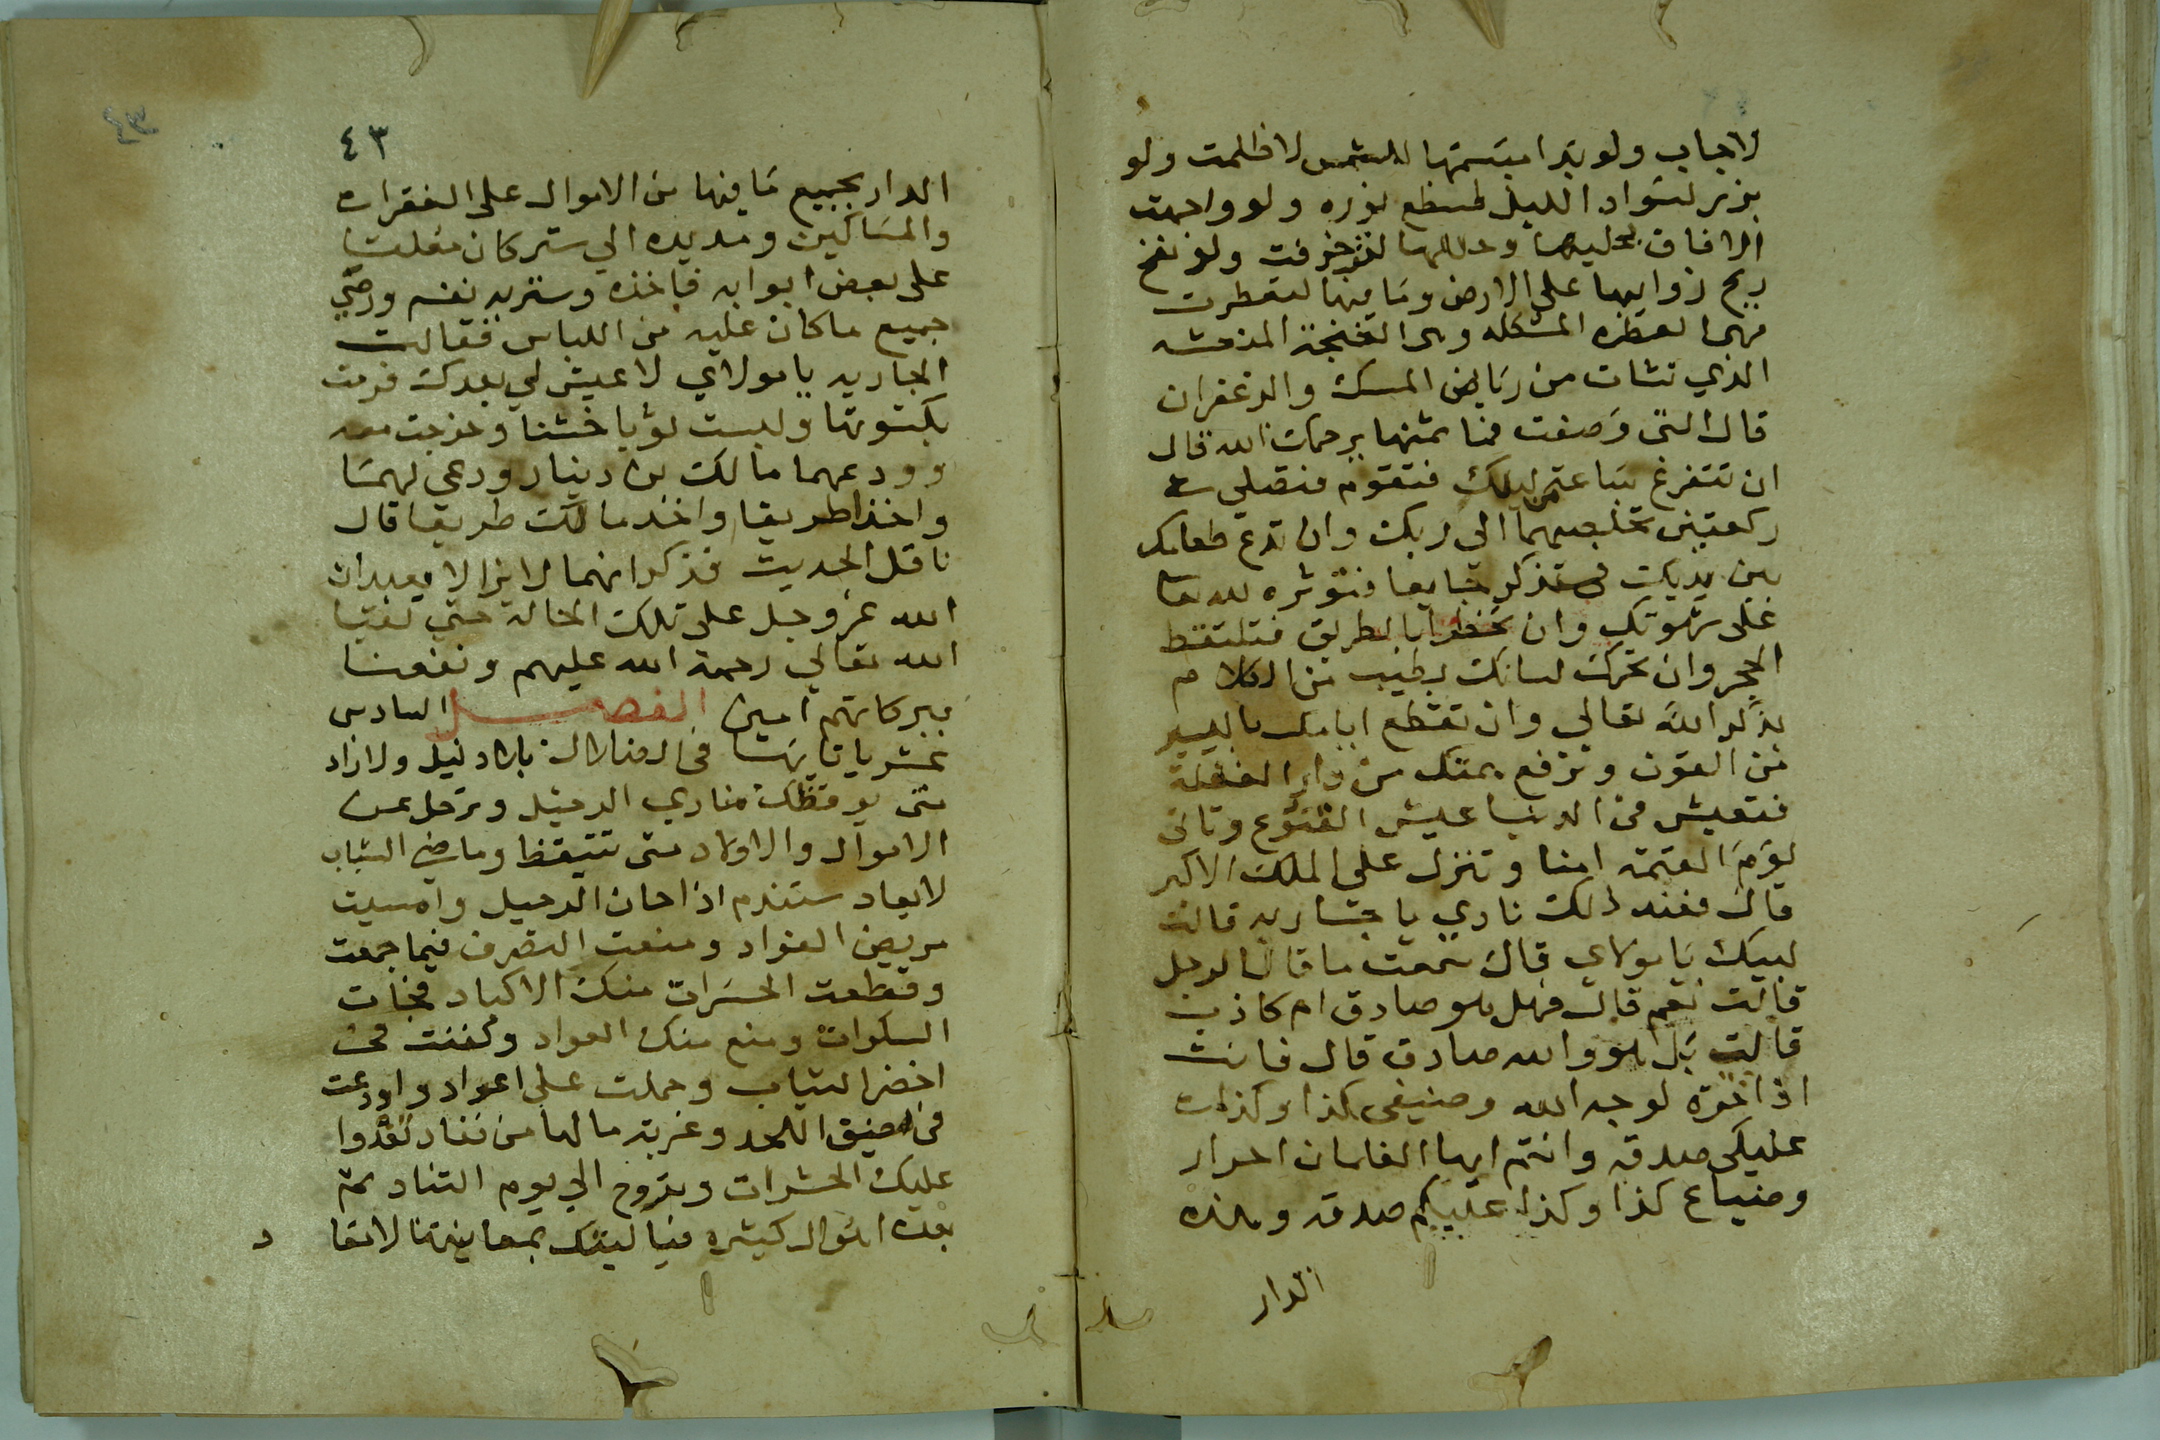 لاجاب ولو بدا مبتسمها للشمس لاظلمت ولو
برز لسواد الليل لسطع نوره ولو واجهت
الافاق بحليها وحللها لتزخرفت ولو نفح
ريح ذوايبها على الارض وما فيها لتعطرت
فهي العطره المشكله وهي الغنجة
الذي نشات من رياض المسك والزعفران
قال التي وصفت فما ثمنها يرحمك الله قال
ان تتفرغ ساعة من ليلك فتقوم فتصلي
ركعتين تخلصهما الى ربك وان تدع طعامك
بين يديك فتذكر جايعا فتوثره لله تعا
على شهوتك وان تخطر بالطريق فتلتقط
الحجر وان تحرك لسانك بطيب من الكلام
بذكر الله تعالي وان تقطع ايامك باليسير
من القوت وترفع همتك من دار الغفلة
فتعيش في الدنيا عيش القنوع وتاتى
يوم القيمه امنا وتنزل على الملك الاكبر
قال فعند ذلك نادي يا جاريه قالت
لبيك يا مولاي قال سمعت ما قال الرجل
قالت نعم قال فهل هو صادق ام كاذب
قالت بل هو والله صادق قال فانت
اذا حرة لوجه الله وضيعتي كذا وكذا
عليكي صدقه وانتم ايها الغلمان احرار
وضياع كذا وكذا عليكم صدقه وهذه
الدار
٤٣
الدار بجميع ما فيها من الاموال على الفقراء
والمساكين ومد يده الي ستر كان معلقا
على بعض ابوابه فاخذه وستر به نفسه ورمي
جميع ما كان عليه من اللباس فقالت
الجاريه يا مولاي لا عيش لي بعدك فرمت
بكسوتها ولبست ثوبا خشنا وخرجت معه
وودعهما مالك بن دينار ودعي لهما
واخذا طريقا واخذ مالك طريقا قال
ناقل الحديث فذكر انهما لا يزالا يعبدان
الله عز وجل على تلك الحالة حتى لقيا
الله تعالي رحمة الله عليهم ونفعنا
ببركاتهم امين الفصل السادس
عشر يا تايها في الضلال بلا دليل ولا زاد
متى يوقظك منادي الرحيل وترحل عن
الاموال والاولاد متى تتيقظ وماضي الشباب
لا يعاد ستندم اذا حان الرحيل وامسيت
مريض الفواد ومنعت التصرف فيما جمعت
وقطعت الحسرات منك الاكباد فجات
السكرات ومنع منك العواد وكفنت في
اخضر الثياب وحملت على اعواد واودعت
في ضيق اللحد وغربة مالها من نفاد تغدوا
عليك الحسرات وتروح الي يوم التناد ثم
بعده اهوال كثيره فيا ليتك بمعاينتها لا تعا
د